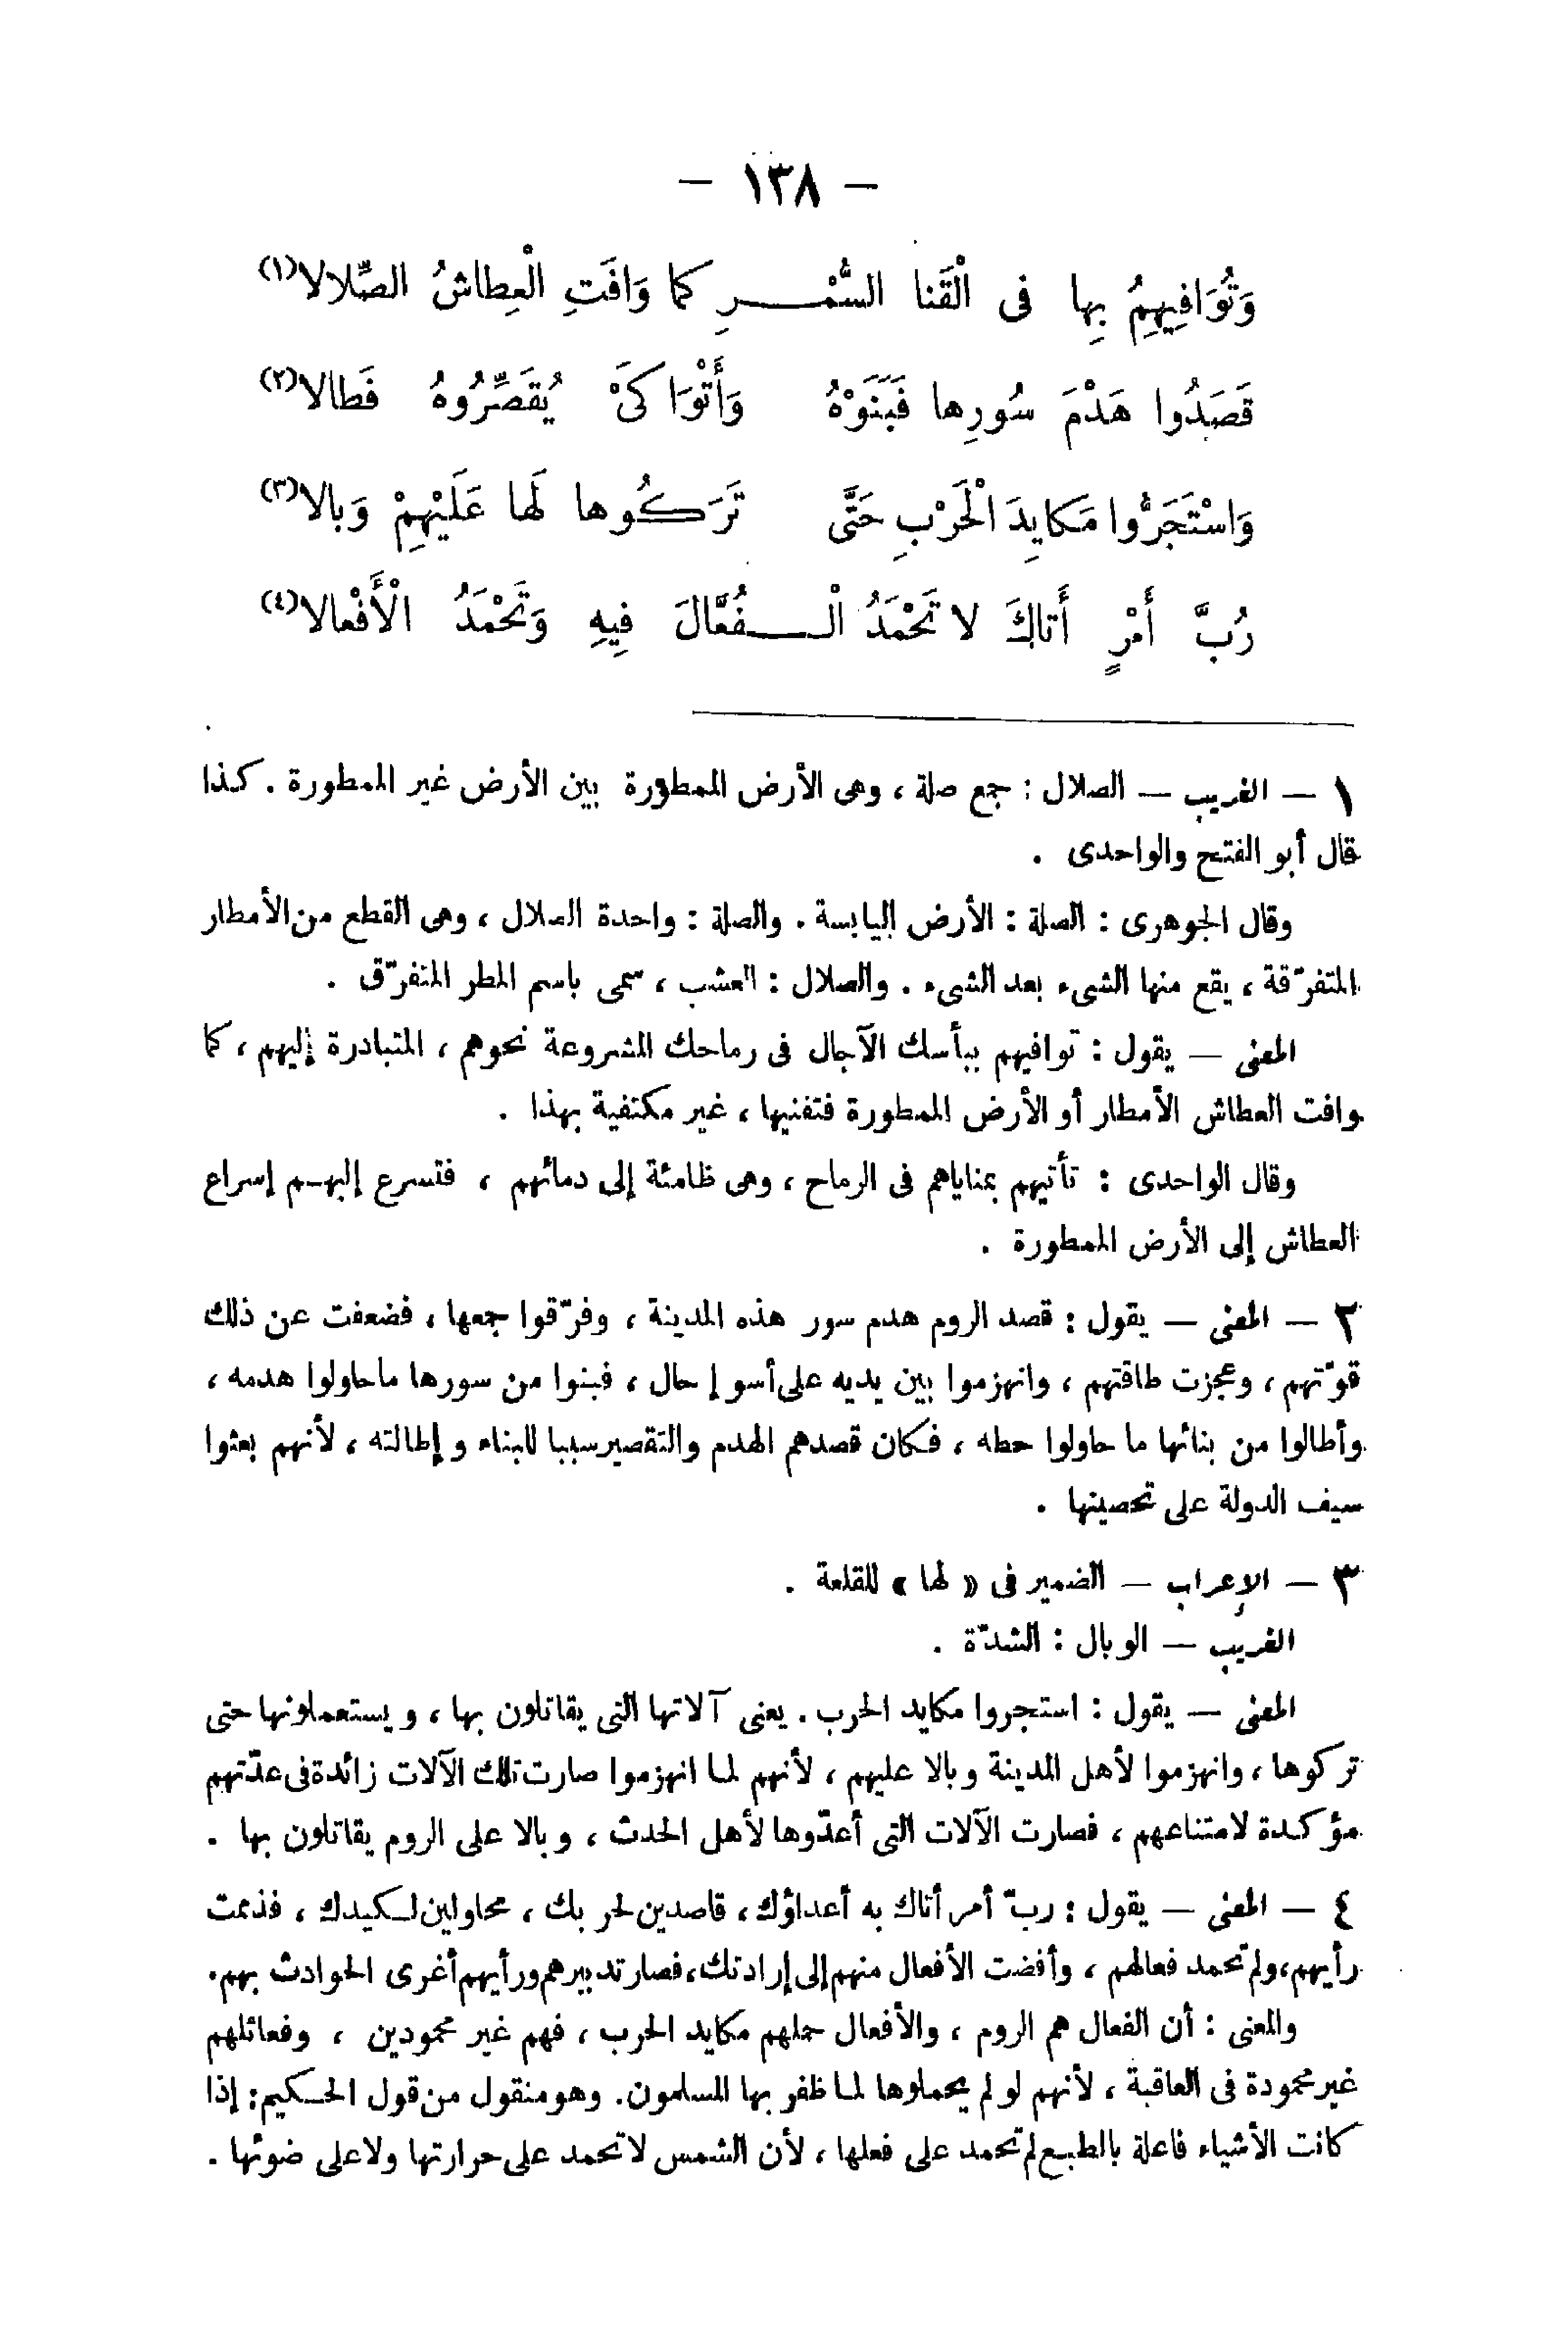 — ١٣٨ —
وَتُوَافِيهِمُ بِها فى الْقَنا السُّمْـــرِ كما وَافَتِ الْعِطاشُ الصِّلالا(١)
قَصَدُوا هَدْمَ سُورِها فَبَنَوْهُ وَأَتَوْا كَىْ يُقَصِّرُوهُ فَطالا(٢)
وَاسْتَجَرُّوا مَكايِدَ الْحَرْبِ حَتَّى تَرَكُوها لَها عَلَيْهِمْ وَبالا(٣)
رُبَّ أَمْرٍ أَتاكَ لا تَحْمَدُ الْـــفُعَّالَ فِيهِ وَتَحْمَدُ الْأَفْعالا(٤)
١ — الغريب — الصلال : جمع صلة ، وهى الأرض الممطورة بين الأرض غير الممطورة . كذا
قال أبو الفتح والواحدى .
وقال الجوهرى : الصلة : الأرض اليابسة . والصلة : واحدة الصلال ، وهى القطع من الأمطار
المتفرّقة ، يقع منها الشىء بعد الشىء . والصلال : العشب ، سمى باسم المطر المتفرّق .
المعنى — يقول : توافيهم ببأسك الآجال فى رماحك المشروعة نحوهم ، المتبادرة إليهم ، كما
وافت العطاش الأمطار أو الأرض الممطورة فتفنيها ، غير مكتفية بهذا .
وقال الواحدى : تأتيهم بمناياهم فى الرماح ، وهى ظامئة إلى دمائهم ، فتسرع إليهـم إسراع
العطاش إلى الأرض الممطورة .
٢ — المعنى — يقول : قصد الروم هدم سور هذه المدينة ، وفرّقوا جمعها ، فضعفت عن ذلك
قوّتهم ، وعجزت طاقتهم ، وانهزموا بين يديه على أسوإ حال ، فبنوا من سورها ماحاولوا هدمه ،
وأطالوا من بنائها ما حاولوا حطه ، فكان قصدهم الهدم والتقصير سببا للبناء وإطالته ، لأنهم بعثوا
سيف الدولة على تحصينها .
٣ — الإعراب — الضمير فى « لها » للقلعة .
الغريب — الوبال : الشدّة .
المعنى — يقول : استجروا مكايد الحرب . يعنى آلاتها التى يقاتلون بها ، ويستعملونها حتى
تركوها ، وانهزموا لأهل المدينة وبالا عليهم ، لأنهم لما انهزموا صارت تلك الآلات زائدة فى عدّتهم
مؤكدة لامتناعهم ، فصارت الآلات التى أعدّوها لأهل الحدث ، وبالا على الروم يقاتلون بها .
٤ — المعنى — يقول : ربّ أمر أتاك به أعداؤك ، قاصدين لحربك ، محاولين لـكيدك ، فذممت
رأيهم، ولم تحمد فعالهم ، وأفضت الأفعال منهم إلى إرادتك، فصار تدبيرهم ورأيهم أغرى الحوادث بهم.
والمعنى : أن الفعال هم الروم ، والأفعال حملهم مكايد الحرب ، فهم غير محمودين ، وفعائلهم
غير محمودة فى العاقبة ، لأنهم لو لم يحملوها لما ظفر بها المسلمون. وهو منقول من قول الحـكيم: إذا
كانت الأشياء فاعلة بالطبـع لم تحمد على فعلها ، لأن الشمس لا تحمد على حرارتها ولا على ضوئها .